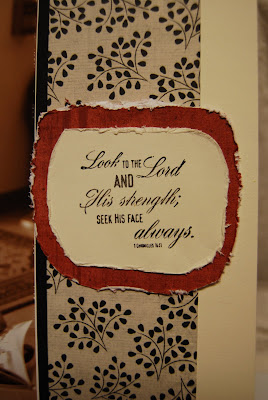 Look to the Lord
and
His strength;
seek His face
always.
1 Chronicles 16:11